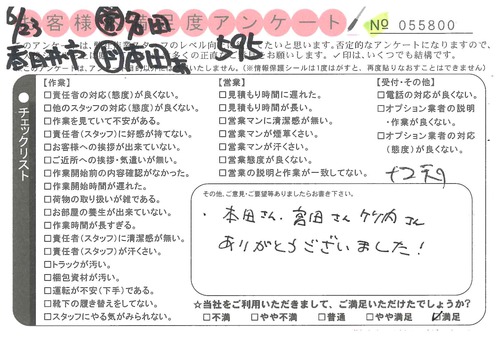 お客様満足度アンケート
№ 055800
6/23
春日井市
595
チェックリスト
【作業】
□責任者の対応(態度)が良くない。
□他のスタッフの対応(態度)が良くない。
□作業を見ていて不安がある。
□責任者(スタッフ)に好感が持てない。
□お客様への挨拶が出来ていない。
□ご近所への挨拶・気遣いが無い。
□作業開始前の内容確認がなかった。
□作業開始時間が遅れた。
□荷物の取り扱いが雑である。
□お部屋の養生が出来ていない。
□作業時間が長すぎる。
□責任者(スタッフ)に清潔感が無い。
□責任者(スタッフ)が汗くさい。
□トラックが汚い。
□梱包資材が汚い。
□運転が不安(下手)である。
□靴下の履き替えをしてない。
□スタッフにやる気がみられない。
【営業】
□見積もり時間に遅れた。
□見積もり時間が長い。
□営業マンに清潔感が無い。
□営業マンが煙草くさい。
□営業マンが汗くさい。
□営業態度が良くない。
□営業の説明と作業が一致してない。
【受付・その他】
□電話の対応が良くない。
□オプション業者の説明
・作業が良くない。
□オプション業者の対応
(態度)が良くない。
その他、ご意見・ご要望等ありましたらお書き下さい。
・本田さん、宮田さん 竹内さん
ありがとうございました!
☆当社をご利用いただきまして、ご満足いただけたでしょうか?
□不満 □やや不満 □普通 □やや満足 ☑満足